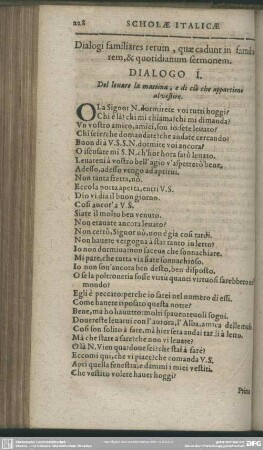 228 SCHOLÆ ITALICÆ
Dialogi familiares rerum, quæ cadunt in famili
rem, & quotidianum sermonem.
DIALOGO I.
Del levare la mattina, e di ciò che appartiene
al vestire.
OLa Signor N. dormirete voi tutti hoggi?
Chi è là? chi mi chiama? chi mi dimanda?
Un vostro amico, amici, son io: siete levato?
Chi sete? che domandate? che andate cercando?
Buon dì à V. S. S. N. dormite voi ancora?
O iscusate mi S. N. ch'hor hora sarò levato.
Levatevi à vostro bell' agio v'aspetterò bene,
Adesso, adesso vengo ad aprirvi.
Non tanta fretta, nò,
Eccola porta aperta, entri V. S.
Dio vi dia il buon giorno.
Così ancor' a V. S.
Siate il molto ben venuto.
Non eravate ancora levato?
Non certo, Signor nò, non è gia così tardi.
Non havete vergogna à star tanto in letto?
Io non dormiva: non saceua che sonnachiare.
Mi pare, che tutta via siate sonnachioso.
Io non son'ancora ben desto, ben disposto.
O se la poltroneria fosse virtù quanti virtuosi sarebbero al
mondo?
Egli è peccato: perche io sarei nel numero di essi.
Come havete riposato questa notte?
Bene, mà hò havuto molti spaventevoli sogni.
Dovereste levarvi con l'aurora, l'Alba, amica delle muse
Così son solito à fare, mà hier sera andai tardi à letto.
Mà che state à fare? che non vi levate?
Olà N. Vien qua: dove sei? che stai à fare?
Eccomi qui, che vi piace? che comanda V. S.
Apri quella fenestra: e dammi i miei vestiti.
Che vestito volete haver hoggi?
Prima